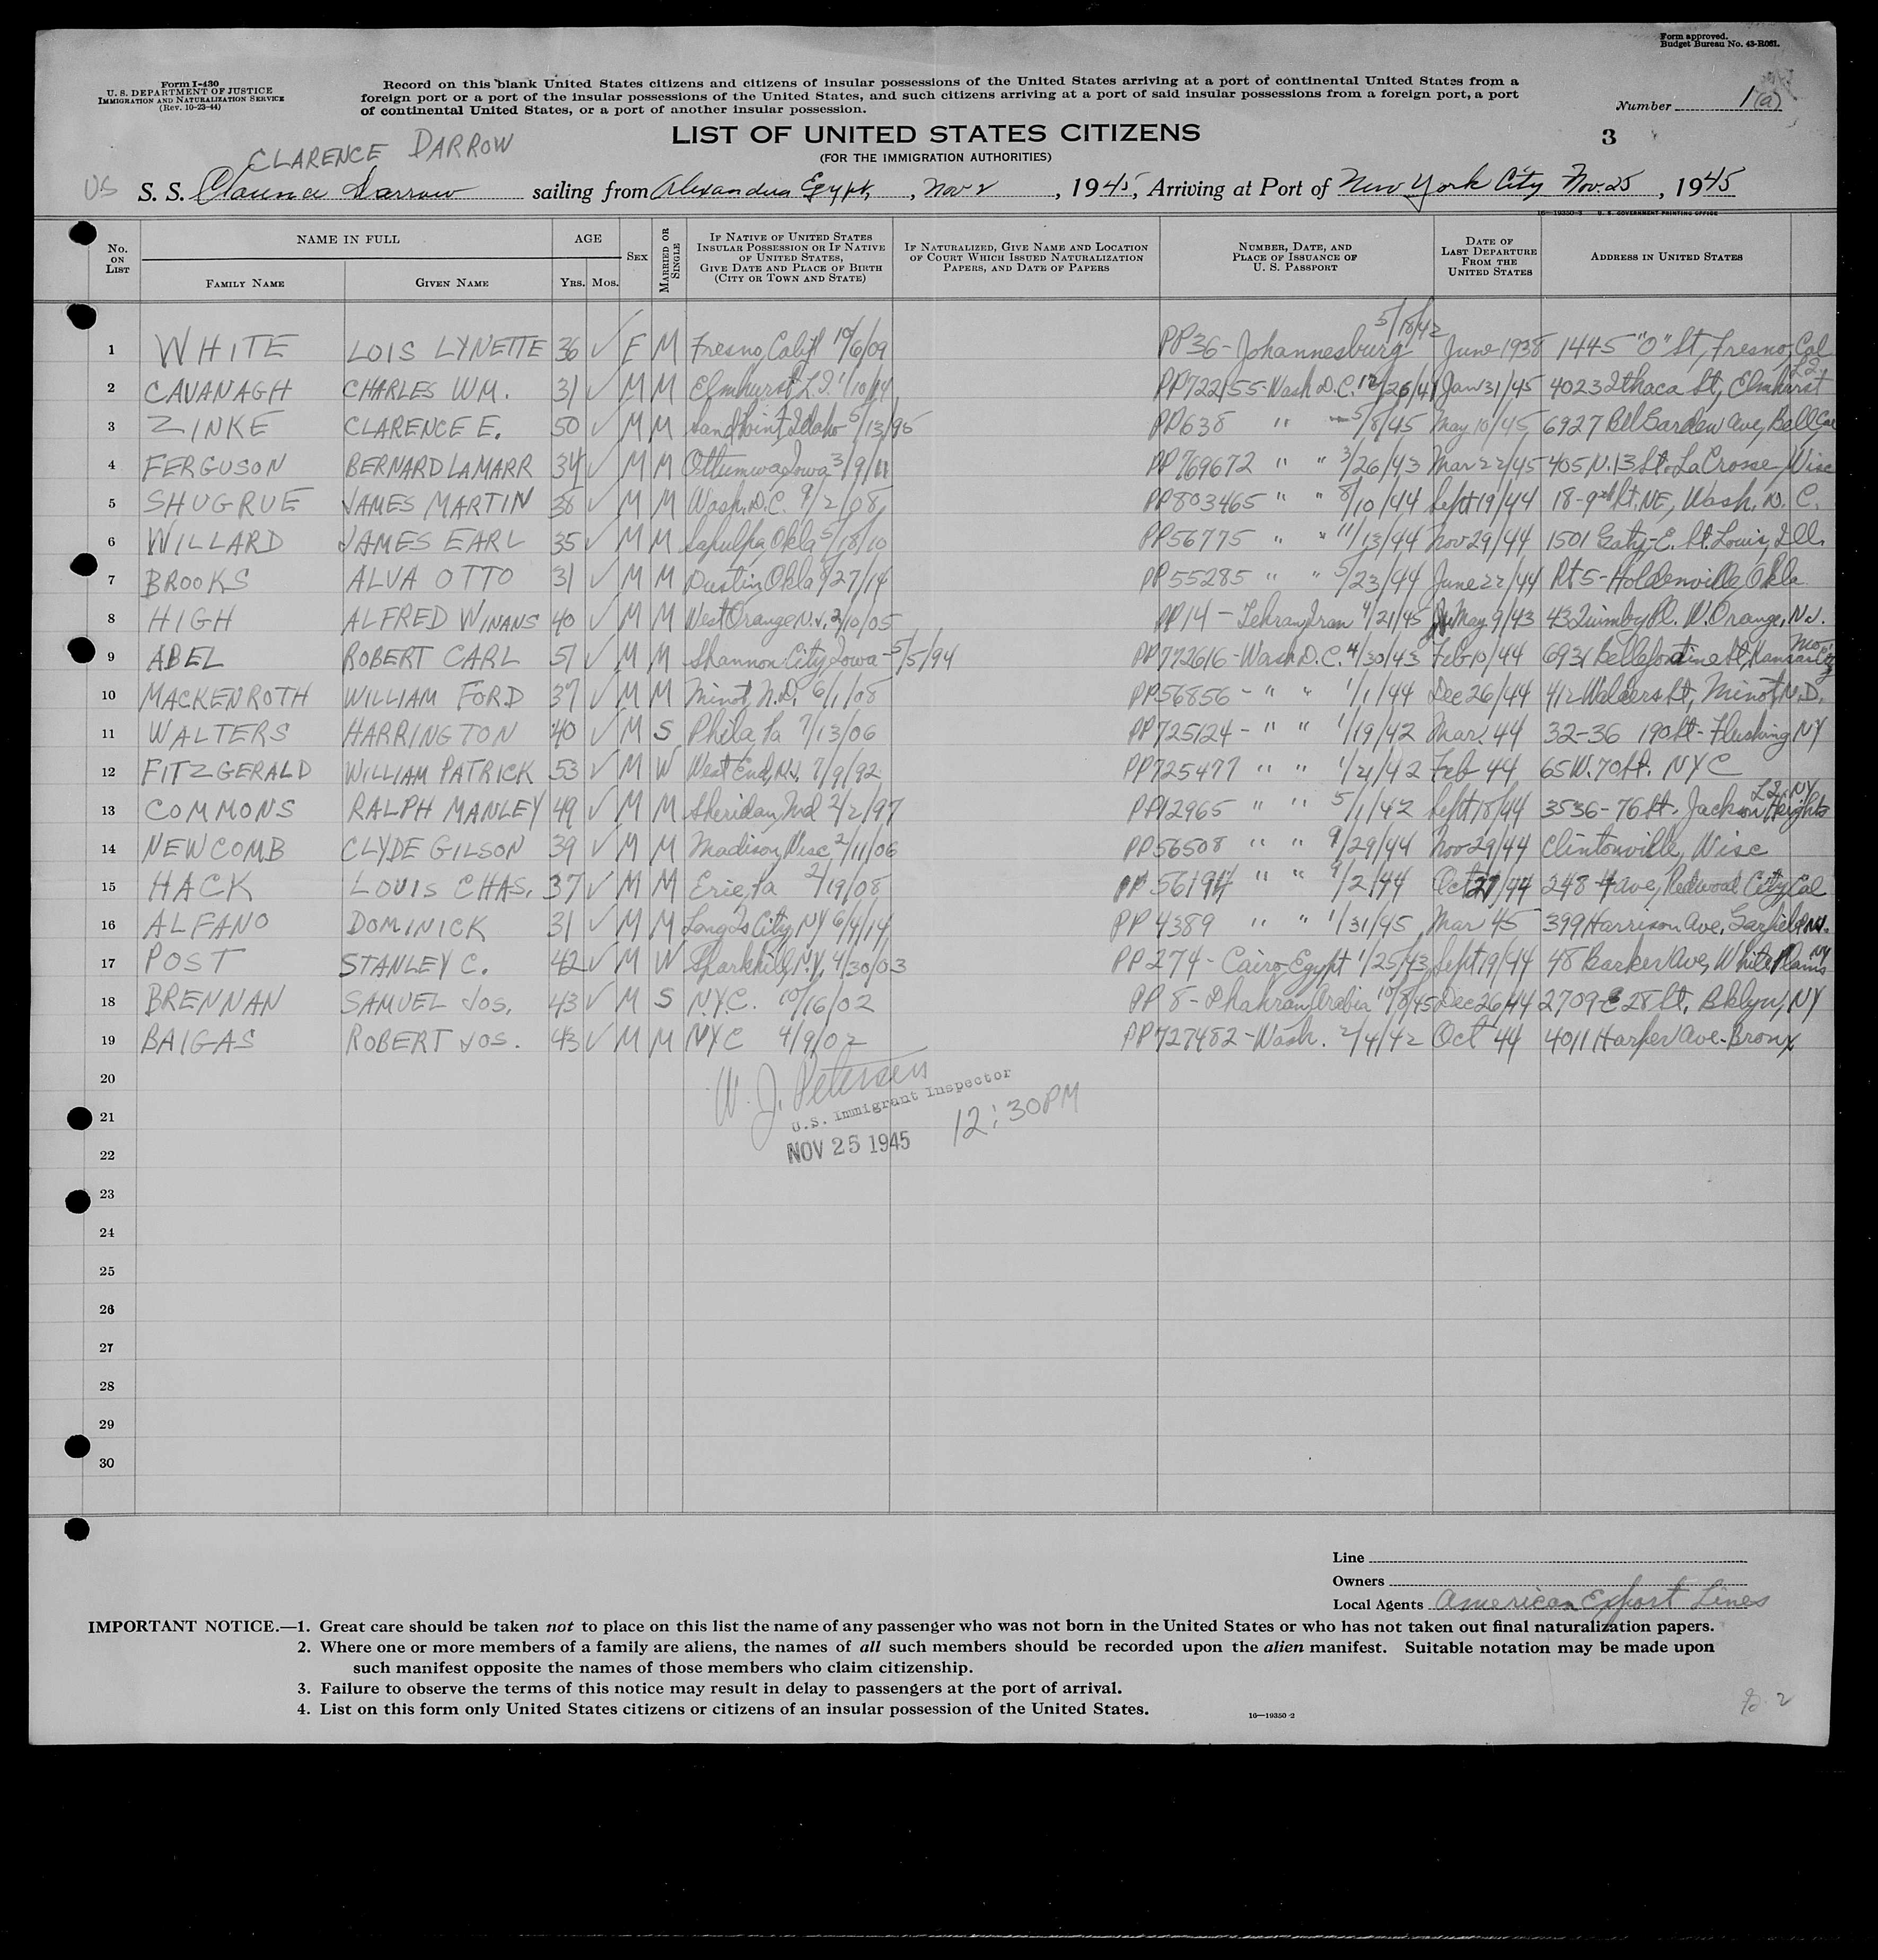 Form approved.
Budget Bureau No. 43-R081.
Form I-430
U. S. DEPARTMENT OF JUSTICE
IMMIGRATION AND NATURALIZATION SERVICE
(Rev. 10-23-44)
Record on this blank United States citizens and citizens of insular possessions of the United States arriving at a port of continental United States from a
foreign port or a port of the insular possessions of the United States, and such citizens arriving at a port of said insular possessions from a foreign port, a port
of continental United States, or a port of another insular possession.
Number 1 (a)
LIST OF UNITED STATES CITIZENS
3
(FOR THE IMMIGRATION AUTHORITIES)
CLARENCE DARROW
US S. S. Clarence Darrow sailing from Alexandria Egypt, Nov 2, 1945, Arriving at Port of New York City Nov. 25, 1945
16—19350-3 U. S. GOVERNMENT PRINTING OFFICE
No. ON LIST
NAME IN FULL
FAMILY NAME
GIVEN NAME
AGE
YRS. MOS.
SEX
MARRIED OR SINGLE
IF NATIVE OF UNITED STATES INSULAR POSSESSION OR IF NATIVE OF UNITED STATES, GIVE DATE AND PLACE OF BIRTH (CITY OR TOWN AND STATE)
IF NATURALIZED, GIVE NAME AND LOCATION OF COURT WHICH ISSUED NATURALIZATION PAPERS, AND DATE OF PAPERS
NUMBER, DATE, AND PLACE OF ISSUANCE OF U. S. PASSPORT
DATE OF LAST DEPARTURE FROM THE UNITED STATES
ADDRESS IN UNITED STATES
1 WHITE LOIS LYNETTE 36 ✓ F M Fresno, Calif 10/6/09 PP36 - Johannesburg 5/18/42 June 1938 1445 "O" St, Fresno, Cal
2 CAVANAGH CHARLES WM. 31 ✓ M M Elmhurst L.I. 1/10/14 PP722155-Wash D.C. 12/26/41 Jan 31/45 4023 Ithaca St, Elmhurst L.I.
3 ZINKE CLARENCE E. 50 ✓ M M Sandpoint Idaho 5/13/95 PP638 " " 5/8/45 May 10/45 6927 Bel Garden Ave, Bell, Cal
4 FERGUSON BERNARD LAMARR 34 ✓ M M Ottumwa, Iowa 3/9/11 PP769672 " " 3/26/43 Mar 22/45 405 N. 13 St. La Crosse, Wisc
5 SHUGRUE JAMES MARTIN 38 ✓ M M Wash. D.C. 9/2/08 PP803465 " " 8/10/44 Sept 19/44 18-9th St. NE, Wash. D. C.
6 WILLARD JAMES EARL 35 ✓ M M Sapulpa, Okla 5/18/10 PP56775 " " 11/13/44 Nov 29/44 1501 Gaty-E. St. Louis, Ill.
7 BROOKS ALVA OTTO 31 ✓ M M Dustin Okla 9/27/14 PP55285 " " 5/23/44 June 22/44 Rt 5-Holdenville, Okla
8 HIGH ALFRED WINANS 40 ✓ M M West Orange N.J. 2/10/05 PP14 - Tehran, Iran 4/21/45 May 9/43 43 Quimby Pl. W. Orange, N.J.
9 ABEL ROBERT CARL 51 ✓ M M Shannon City, Iowa - 5/5/94 PP772616-Wash D.C. 4/30/43 Feb 10/44 6931 Bellefontaine St, Kansas City Mo.
10 MACKENROTH WILLIAM FORD 37 ✓ M M Minot, N.D. 6/1/08 PP56856 - " " 1/1/44 Dec 26/44 412 Walders St, Minot, N.D.
11 WALTERS HARRINGTON 40 ✓ M S Phila, Pa 7/13/06 PP725124 - " " 1/19/42 Mar. 44 32-36 190 St - Flushing NY
12 FITZGERALD WILLIAM PATRICK 53 ✓ M W West End, N.J. 7/9/92 PP725477 " " 1/21/42 Feb 44 65 W. 70 St. NYC
13 COMMONS RALPH MANLEY 49 ✓ M M Sheridan, Ind 2/2/97 PP12965 " " 5/1/42 Sept 18/44 3536-76 St. Jackson Heights L.I. NY
14 NEWCOMB CLYDE GILSON 39 ✓ M M Madison, Wisc 2/11/06 PP56508 " " 9/29/44 Nov 29/44 Clintonville, Wisc
15 HACK LOUIS CHAS. 37 ✓ M M Erie, Pa 2/19/08 PP 56194 " " 9/2/44 Oct 27/44 248 4 Ave, Redwood City, Cal
16 ALFANO DOMINICK 31 ✓ M M Long Is City, NY 6/4/14 PP 4389 " " 1/31/45 Mar 45 399 Harrison Ave, Garfield NJ.
17 POST STANLEY C. 42 ✓ M W Sparkhill, N.Y. 4/30/03 PP274 - Cairo, Egypt 1/25/43 Sept 19/44 48 Barker Ave, White Plains NY
18 BRENNAN SAMUEL JOS. 43 ✓ M S N.Y.C. 10/16/02 PP 8 - Dhahran, Arabia 10/8/45 Dec 26/44 2709-E 28 St. Bklyn, NY
19 BAIGAS ROBERT JOS. 43 ✓ M M NYC 4/9/02 PP727482-Wash. 2/4/42 Oct 44 4011 Harper Ave. Bronx
20
W. J. Petersen
U.S. Immigrant Inspector
21
12:30PM
NOV 25 1945
22
23
24
25
26
27
28
29
30
Line
Owners
Local Agents American Export Lines
IMPORTANT NOTICE.—1. Great care should be taken not to place on this list the name of any passenger who was not born in the United States or who has not taken out final naturalization papers.
2. Where one or more members of a family are aliens, the names of all such members should be recorded upon the alien manifest. Suitable notation may be made upon
such manifest opposite the names of those members who claim citizenship.
3. Failure to observe the terms of this notice may result in delay to passengers at the port of arrival.
4. List on this form only United States citizens or citizens of an insular possession of the United States.
16—19350-2